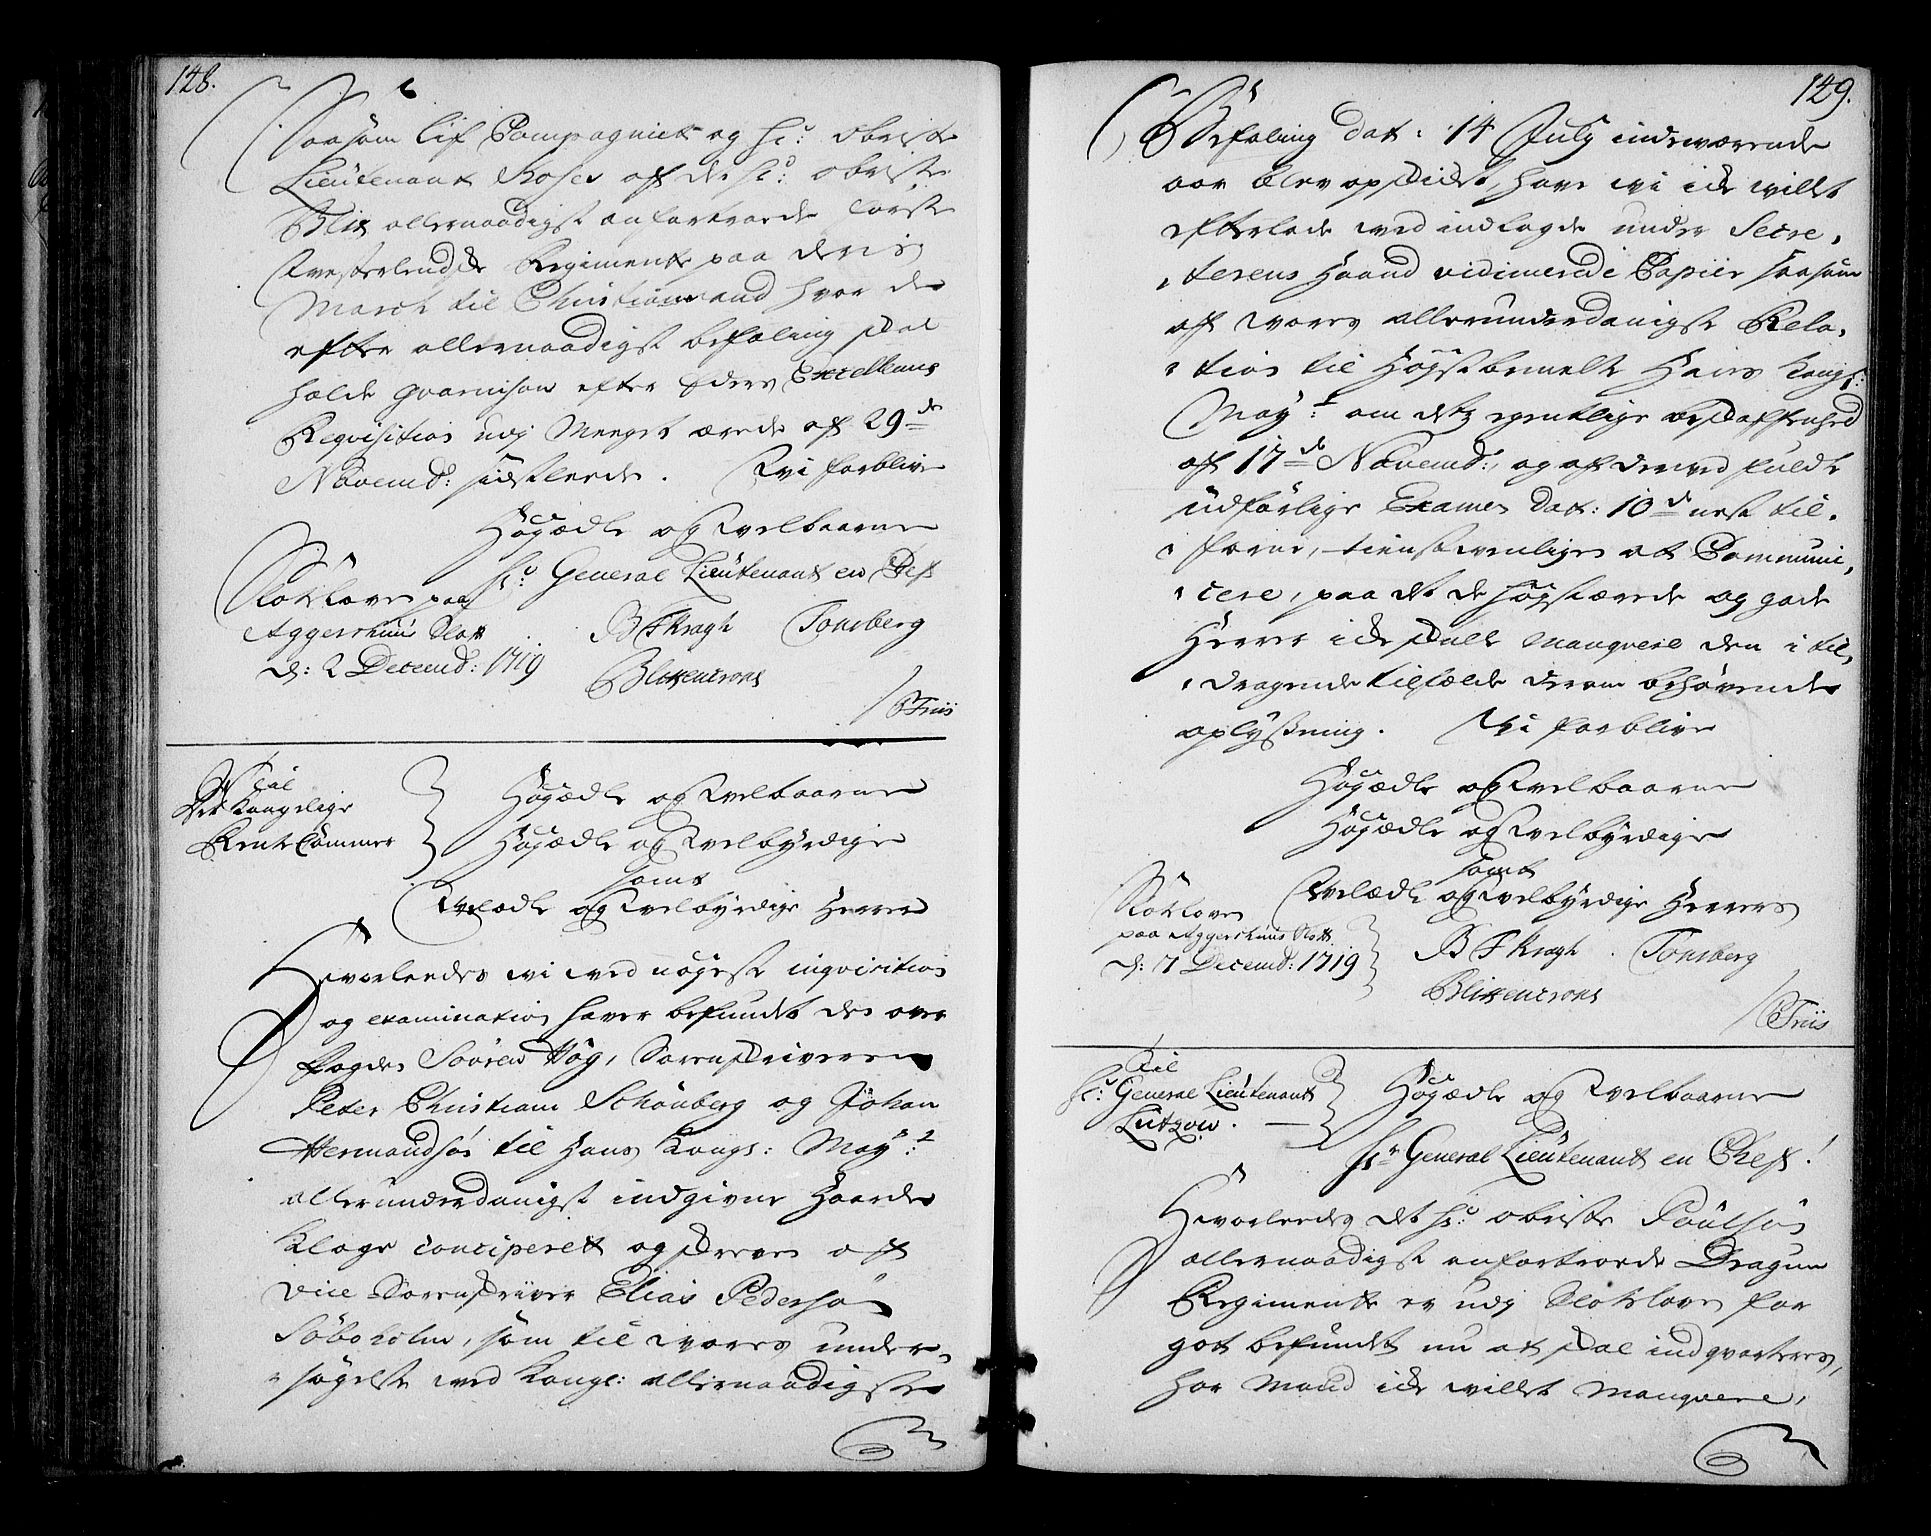 148.
Saasom lif Compagniet og hr: Obriste
Lieutenant Roses aff de hr: Obriste
Blix allernaadigst anfortroede første
Westerlendske Regimente paa deris
March til Christiansand hvor de
efter allernaadigst befaling skal
holde guarnison efter Eders Excellences
Requisition udj Meeget ærede af 29de
Novemb: sidstleeden. Wi forblive
Høyædle og Welbaarne
hr: General Lieutenant en Chef
Slotzloven paa
Aggershuus Slott
d: 2 Decemb: 1719
B F Kragh Tonsberg
Blixencrone
/ P Friis
Til
Det Kongelige
Rente Cammer
Høyædle og Welbaarne
Høyædle og Welbyrdige
samt
Welædle og Welbyrdige Herrer
Hvorleedes wi ved nøyeste inqvisition
og examination haver befundet den over
Fogden Søvren Høg, Sorenskriveren
Peter Christian Schønberg og Johan
Hermandsøn til Hans Kongl: May:t
allerunderdanigst indgivne haarde
Klage conciperet og skreven aff
Vice Sorenskriver Elias Pedersøn
Søboholm, som til vores under-
søgelse ved Kongl: allernaadigste
149.
Befaling dat: 14 July indeværende
aar blev opskickt, have wi icke willet
efterlade ved indlagde under Secre-
terens Haand vidimerede Papiir saasom
aff wores allerunderdanigste Rela-
tion til Høystbemelte Hans Kongl:
May:t om dets egentlige beskaffenhed
aff 17de Novemb:, og aff derved fuldte
udførlige Examen dat: 10de nest til-
forne, tienstvenligen at Communi-
cere, paa det de høystærede og gode
Herrer icke skulle manqvere den i til-
dragende tilfelde derom behøvende
oplysning. Wi forblive
Høyædle og Welbaarne
Høyædle og Welbyrdige
samt
Welædle og Welbyrdige Herrers
Slotzloven
paa Aggershuus Slott
d: 7 Decemb: 1719
B F Kragh. Tonsberg
Blixencrone
/ P Friis
Til
hr: General Lieutenant
Lützow.
Høyædle og Welbaarne
Hr General Lieutenant en Chef!
Hvorleedes det hr: Obriste Poulsøn
allernaadigst anfortroede Dragun
Regimente er udj Slotzloven for
got befundet nu at skal indqvarteres,
har Mand icke willet manqvere,